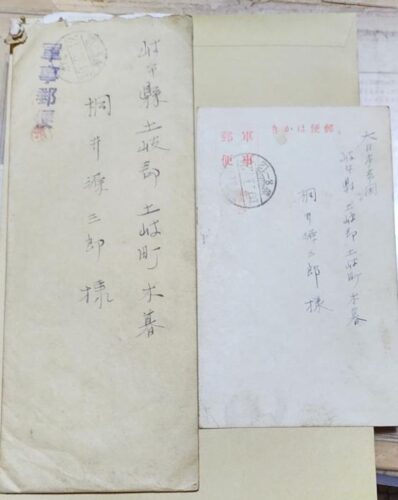 軍事郵便
岐阜縣土岐郡土岐町木暮
桐井源三郎様
郵便はかき
軍事
郵便
大日本帝国
岐阜縣土岐郡土岐町木暮
桐井源三郎様